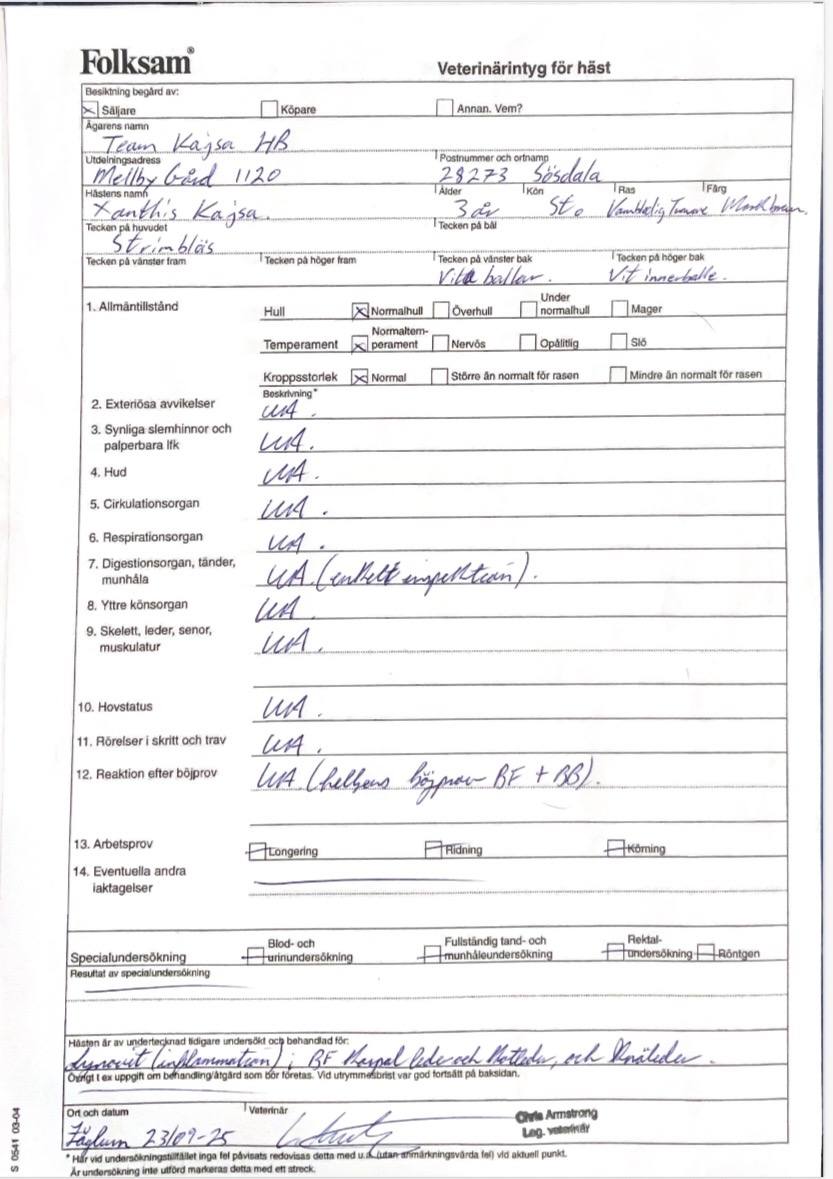 Folksam®
Veterinärintyg för häst
Besiktning begärd av:
Säljare Köpare Annan. Vem?
Ägarens namn
Team Kajsa HB
Utdelningsadress Postnummer och ortnamp
Mellby Gård 1120 28273 Sösdala
Hästens namn Ålder Kön Ras Färg
Xanthis Kajsa. 3 år Sto Varmblodig Travare Mörkbrun
Tecken på huvudet Tecken på bål
Strimbläs
Tecken på vänster fram Tecken på höger fram Tecken på vänster bak Tecken på höger bak
Vita ballar. Vit innerballe.
1. Allmäntillstånd Hull Normalhull Överhull Under normalhull Mager
Temperament Normaltem-perament Nervös Opålitlig Slö
Kroppsstorlek Normal Större än normalt för rasen Mindre än normalt för rasen
Beskrivning*
2. Exteriösa avvikelser UA.
3. Synliga slemhinnor och
palperbara lfk UA.
4. Hud UA.
5. Cirkulationsorgan UA.
6. Respirationsorgan UA.
7. Digestionsorgan, tänder,
munhåla UA. (enkelt inspektion).
8. Yttre könsorgan UA.
9. Skelett, leder, senor,
muskulatur UA.
10. Hovstatus UA.
11. Rörelser i skritt och trav UA.
12. Reaktion efter böjprov UA (helbens böjprov BF + BB).
13. Arbetsprov Longering Ridning Körning
14. Eventuella andra
iaktagelser
Specialundersökning Blod- och urinundersökning Fullständig tand- och munhåleundersökning Rektal-undersökning Röntgen
Resultat av specialundersökning
Hästen är av undertecknad tidigare undersökt och behandlad för:
Synovit (inflammation) i BF Karpal leder och Kotleder, och Knäleder.
Övrigt t ex uppgift om behandling/åtgärd som bör företas. Vid utrymmesbrist var god fortsätt på baksidan.
Ort och datum Veterinär
23/09-25
Chris Armstrong
Leg. veterinär
* Har vid undersökningstillfället inga fel påvisats redovisas detta med u.a. (utan anmärkningsvärda fel) vid aktuell punkt.
Är undersökning inte utförd markeras detta med ett streck.
S 0541 03-04